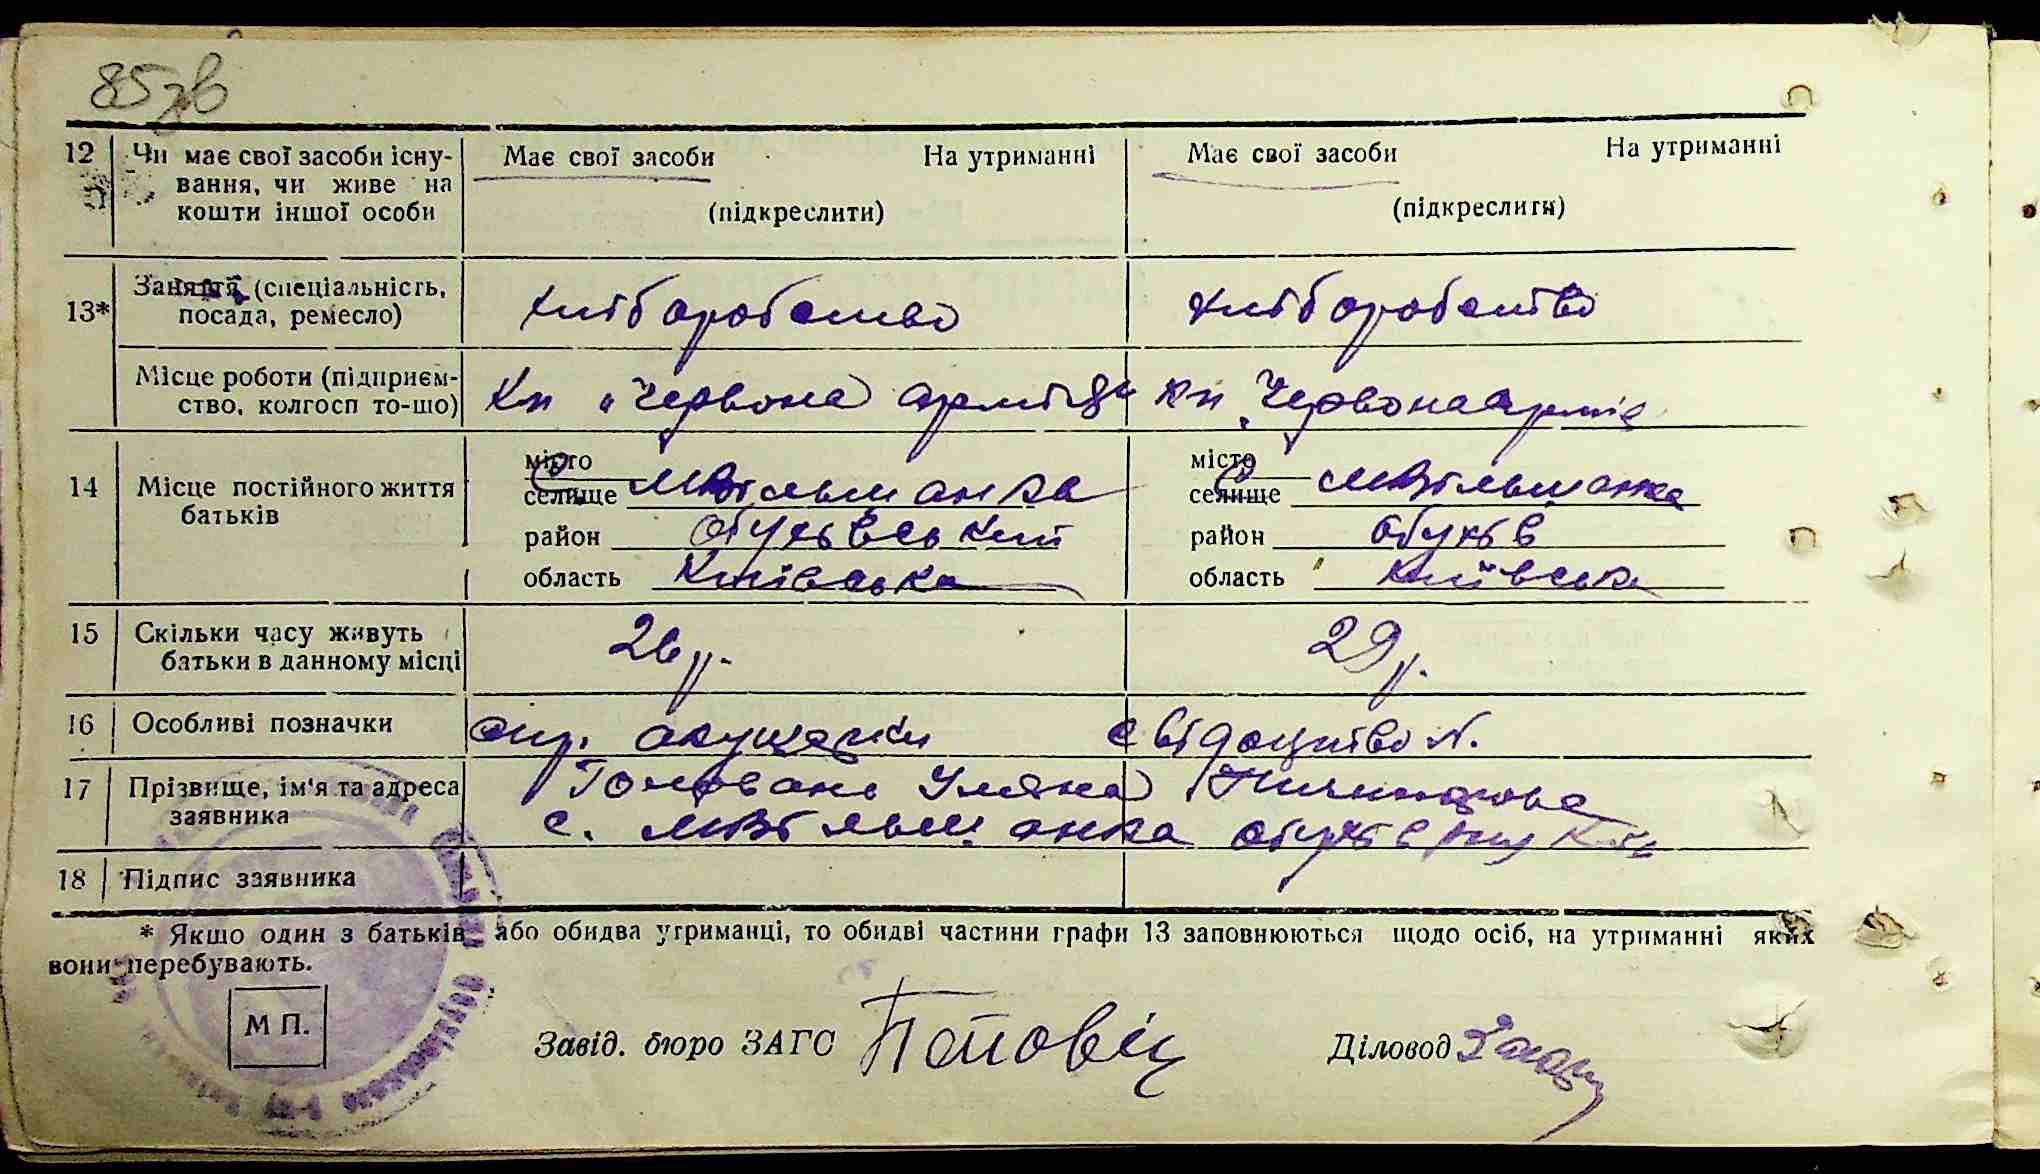 85зв
12 Чи має свої засоби існу- Має свої засоби На утриманні Має свої засоби На утриманні
вання, чи живе на
кошти іншої особи (підкреслити) (підкреслити)
13* Заняття (спеціальність, хліборобство хліборобство
посада, ремесло)
Місце роботи (підприєм- Кп „Червона армія" Кп „Червона армія
ство, колгосп то-що)
14 Місце постійного життя місто місто
батьків селище с. Мівільшанка селище с. Мівільшанка
район Обухівський район Обухів
область Київська область Київська
15 Скільки часу живуть 26 р. 29 р.
батьки в данному місці
16 Особливі позначки акушерки свідоцтво N.
17 Прізвище, ім'я та адреса Головань Уляна
заявника с. Мівільшанка Обухів р-ну
18 Підпис заявника
* Якшо один з батьків, або обидва утриманці, то обидві частини графи 13 заповнюються щодо осіб, на утриманні яких
вони перебувають.
М П.
Завід. бюро ЗАГС Попович Діловод